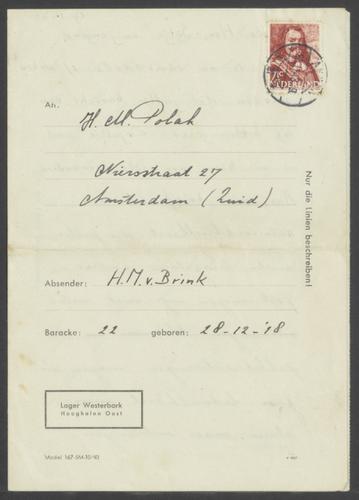 7½ C
NEDERLAND
An:
H. M. Polak
Niersstraat 27
Amsterdam (Zuid)
Nur die Linien beschreiben!
Absender: H.M.v.Brink
Baracke: 22 geboren: 28-12-'18
Lager Westerbork
Hooghalen Oost